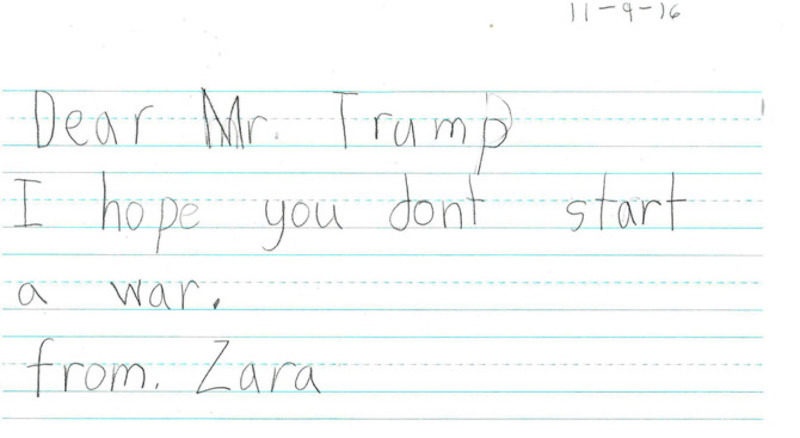 11-9-16
Dear Mr. Trump
I hope you dont start
a war.
from. Zara